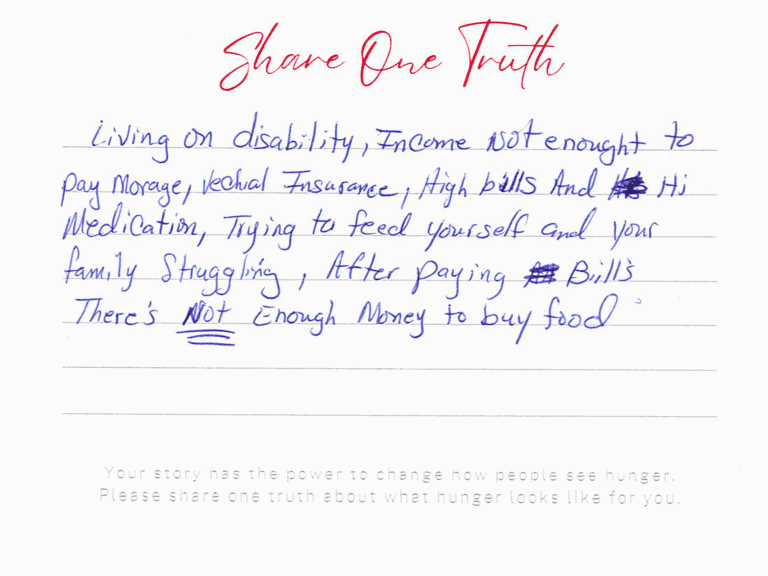 Share One Truth
Living on disability, Income Not enought to
pay Morage, Vechial Insurance, High bills And Hi
Medication, Trying to feed yourself and your
family Struggling, After paying Bills
There's Not Enough Money to buy food
Your story has the power to change how people see hunger.
Please share one truth about what hunger looks like for you.